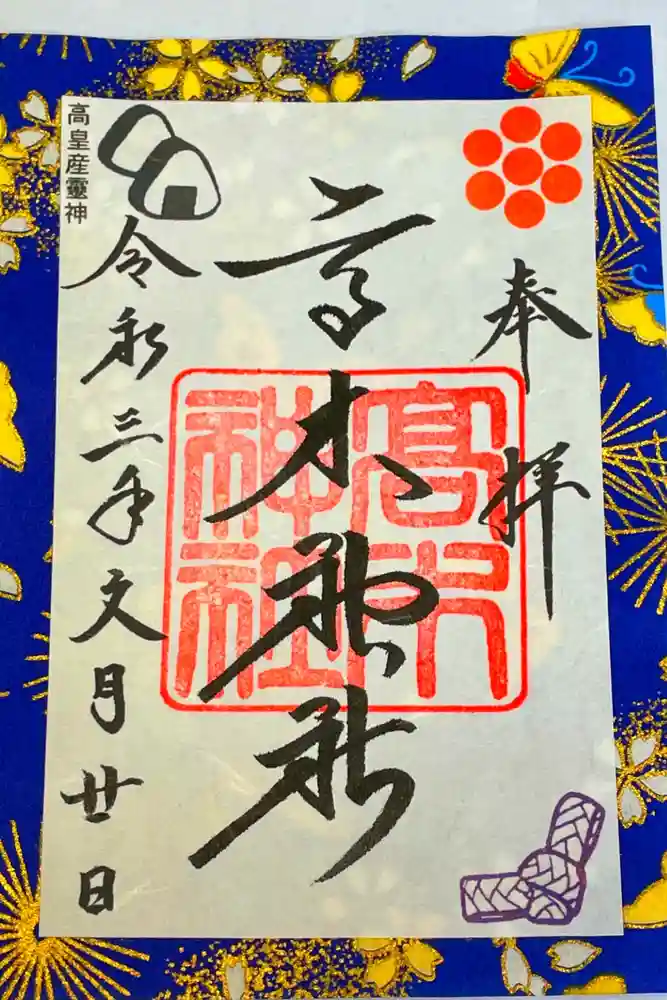 奉拝
高木神社
高木神社
令和三年文月廿日
高皇産靈神